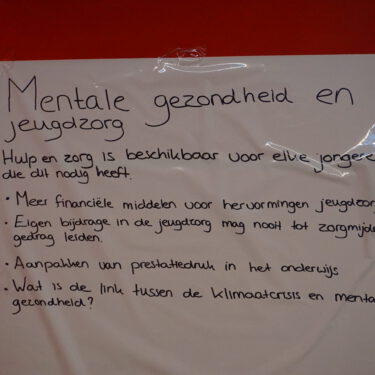 Mentale gezondheid en
jeugdzorg
Hulp en zorg is beschikbaar voor elke jongere
die dit nodig heeft.
• Meer financiële middelen voor hervormingen jeugdzor
• Eigen bijdrage in de jeugdzorg mag nooit tot zorgmijde
gedrag leiden.
• Aanpakken van prestatiedruk in het onderwijs
• Wat is de link tussen de klimaatcrisis en menta
gezondheid?